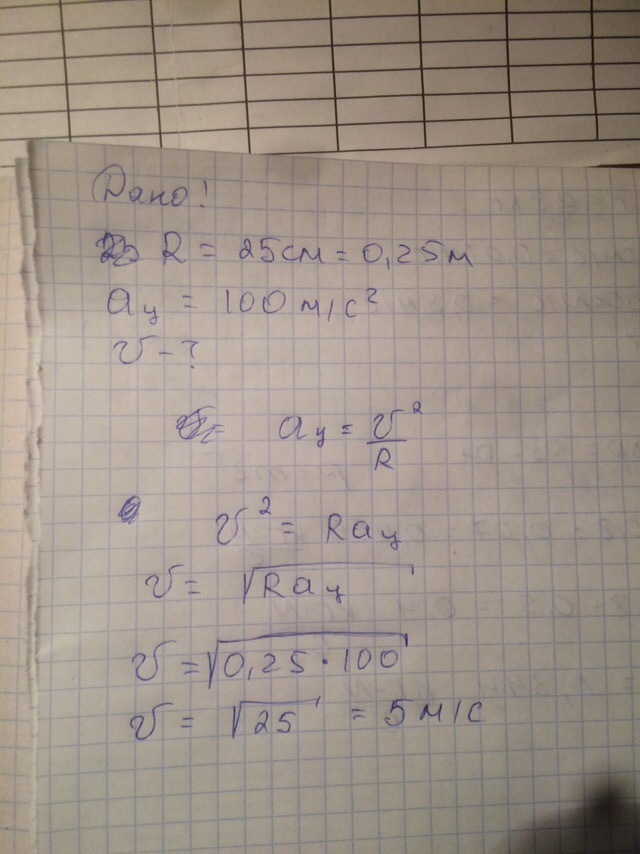 Дано!
R = 25см = 0,25м
aц = 100 м/с²
v - ?
aц = v²/R
v² = Raц
v = √Raц
v = √0,25·100
v = √25 = 5 м/с